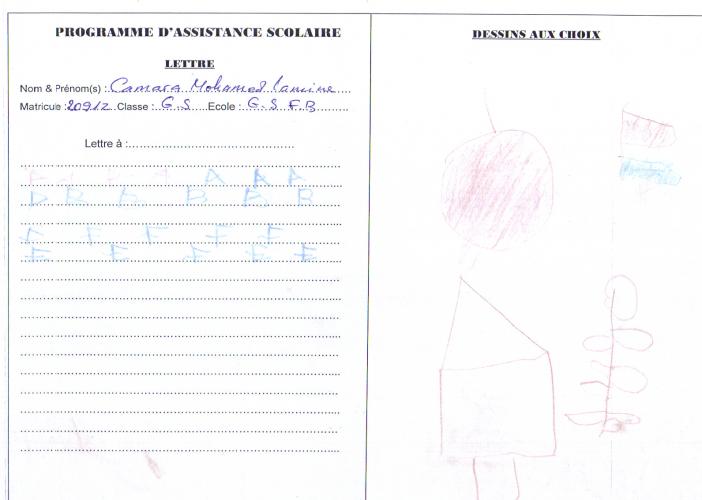 PROGRAMME D'ASSISTANCE SCOLAIRE
LETTRE
Nom & Prénom(s) : Camara Mohamed Lamine
Matricule : 20912 Classe : G.S Ecole : G.S F.B
Lettre à :
A A A A A A A
B B B B B B
F F F F F
F F F F F
DESSINS AUX CHOIX